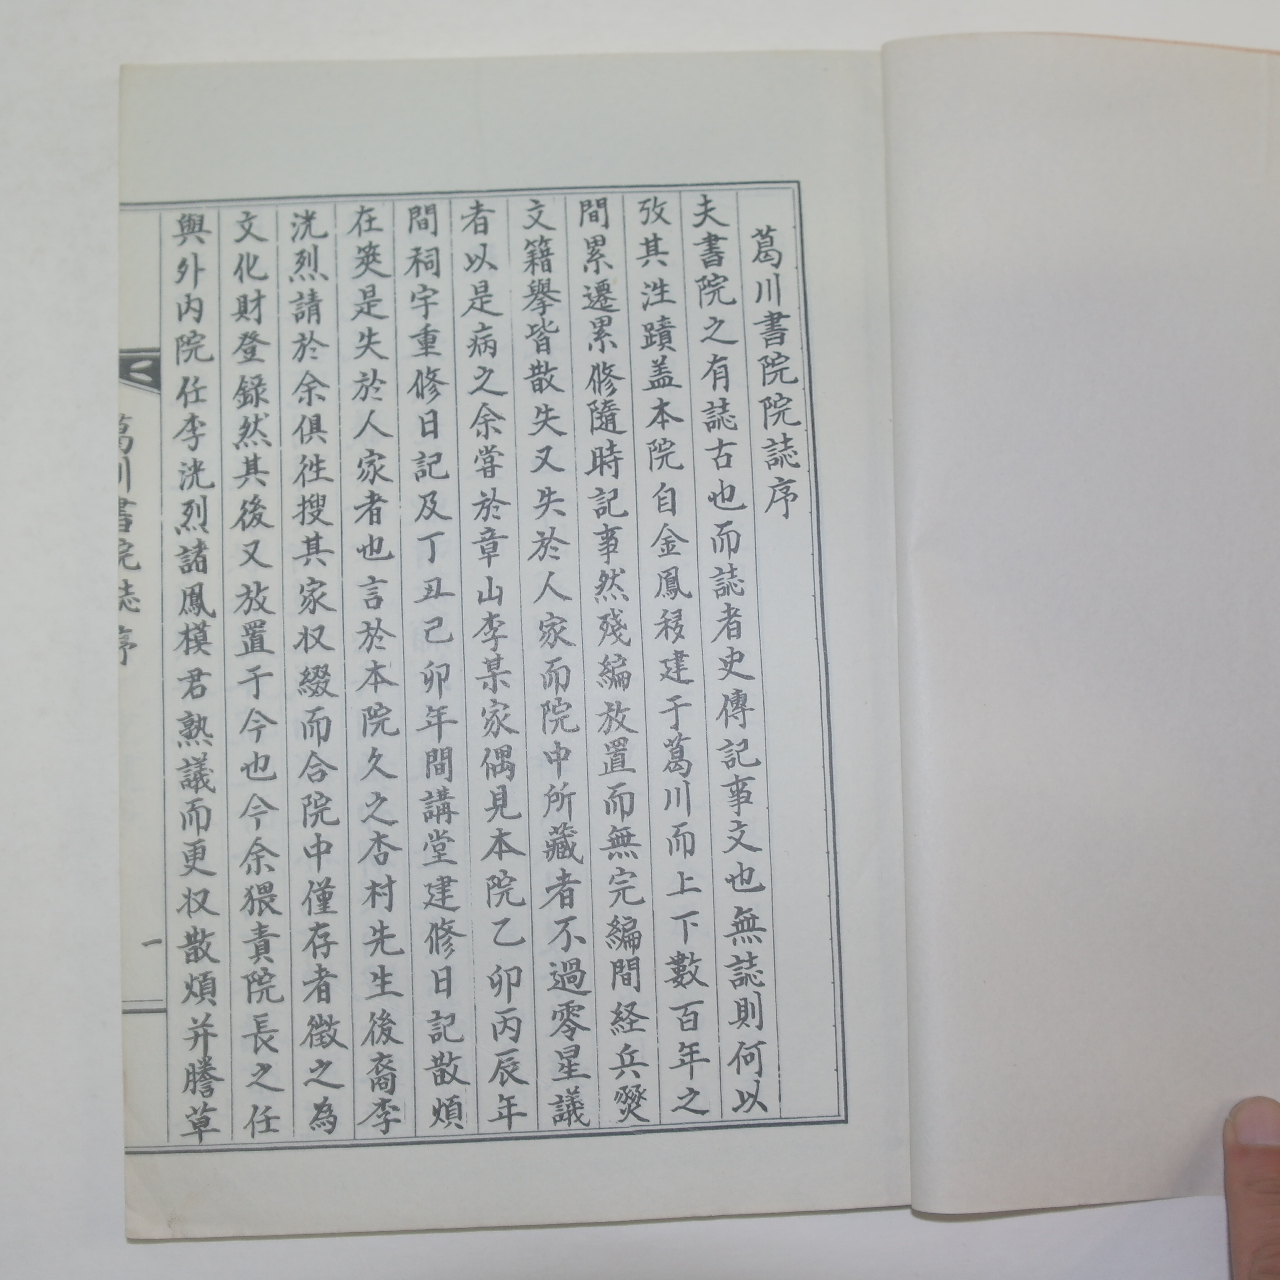 葛川書院院誌序
夫書院之有誌古也而誌者史傳記事文也無誌則何以
攷其泩蹟盖本院自金鳳移建于葛川而上下數百年之
間累遷累修隨時記事然殘編放置而無完編間経兵燹
文籍擧皆散失又失於人家而院中所藏者不過零星議
者以是病之余嘗於章山李某家偶見本院乙卯丙辰年
間祠宇重修日記及丁丑己卯年間講堂建修日記散煩
在筴是失於人家者也言於本院久之杏村先生後裔李
洸烈請於余俱徃搜其家収綴而合院中僅存者徵之為
文化財登録然其後又放置于今也今余猥責院長之任
與外内院任李洸烈諸鳳模君熟議而更収散煩并謄草
葛川書院誌 序
一